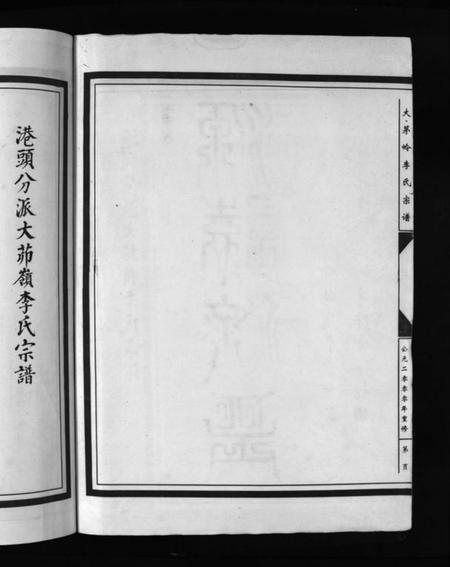 大·茅岭李氏宗谱
公元二零零零年重修
第 頁
港頭分派大茆嶺李氏宗譜